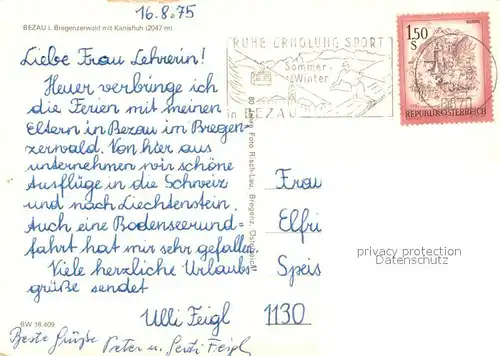 16.8.75
BEZAU i. Bregenzerwald mit Kanisfluh (2047 m)
Liebe Frau Lehrerin!
Heuer verbringe ich
die Ferien mit meinen
Eltern in Bezau im Bregen-
zerwald. Von hier aus
unternehmen wir schöne
Ausflüge in die Schweiz
und nach Liechtenstein.
Auch eine Bodenseerund=
fahrt hat mir sehr gefallen.
Viele herzliche Urlaubs-
grüße sendet
Ulli Feigl
BW 18.409
Beste Grüße Peter u. Feigl
Foto Risch-Lau, Bregenz,
RUHE ERHOLUNG SPORT
Sommer-
Winter
in BEZAU
1.50
S
REPUBLIK ÖSTERREICH
Frau
Elfri
Speis
1130
privacy protection
Datenschutz